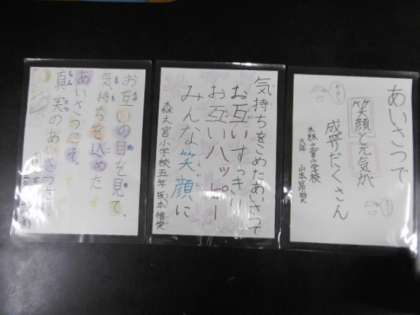 あいさつで
笑顔と元気が
成芽だくさん
森之宮小学校
六年 山本
気持ちをこめたあいさつで
お互いすっきり
お互いハッピー
みんな笑顔に
森之宮小学校五年 坂本
お互いの目を見て、
気持ちを込めた
あいさつこそ、
真実のあいさつ